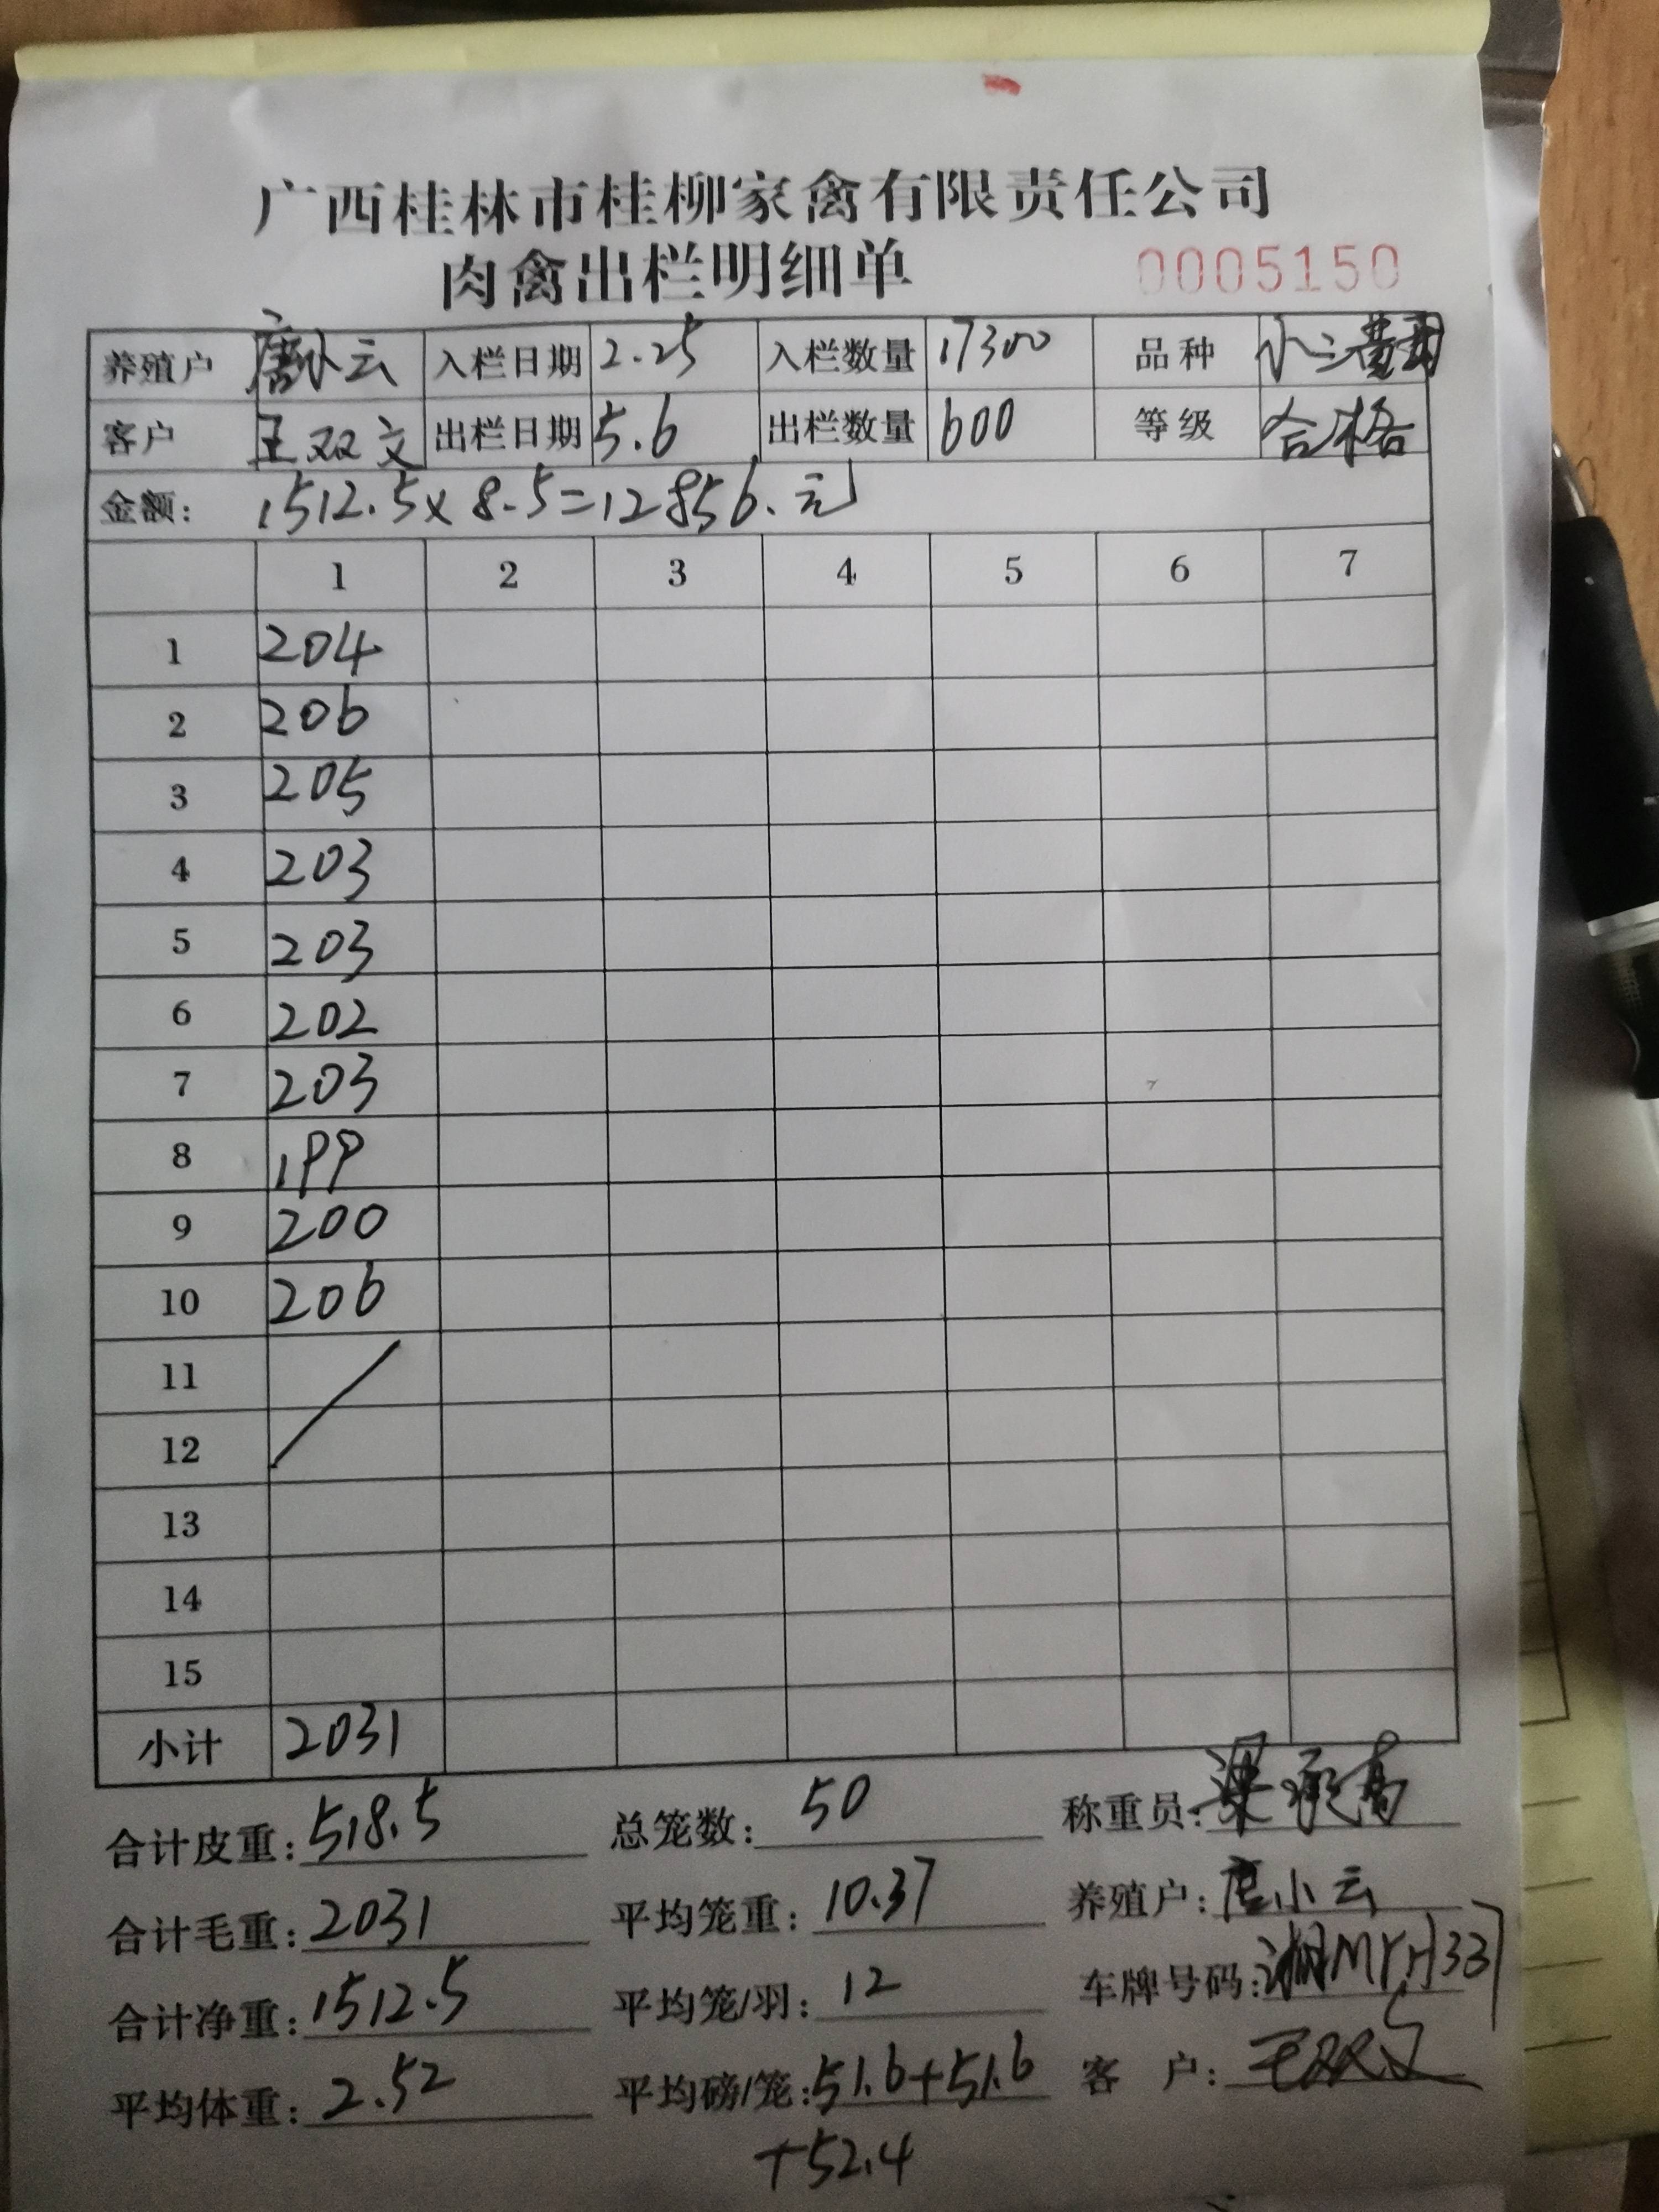 广西桂林市桂柳家禽有限责任公司
肉禽出栏明细单 0005150
养殖户 唐小云 入栏日期 2.25 入栏数量 17300 品种 小三黄
客户 王双文 出栏日期 5.6 出栏数量 600 等级 合格
金额: 1512.5×8.5=12856.元
1 2 3 4 5 6 7
1 204
2 206
3 205
4 203
5 203
6 202
7 203
8 199
9 200
10 206
11
12
13
14
15
小计 2031
合计皮重: 518.5 总笼数: 50 称重员: 梁承高
合计毛重: 2031 平均笼重: 10.37 养殖户: 唐小云
合计净重: 1512.5 平均笼/羽: 12 车牌号码: 湘MYH337
平均体重: 2.52 平均磅/笼: 51.6+51.6 客户: 王双文
+52.4